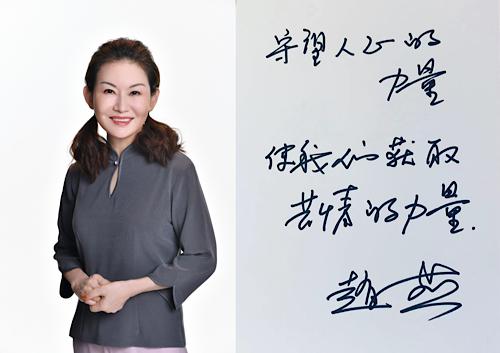 守望人心的
力量
使我们获取
共情的力量.
赵燕